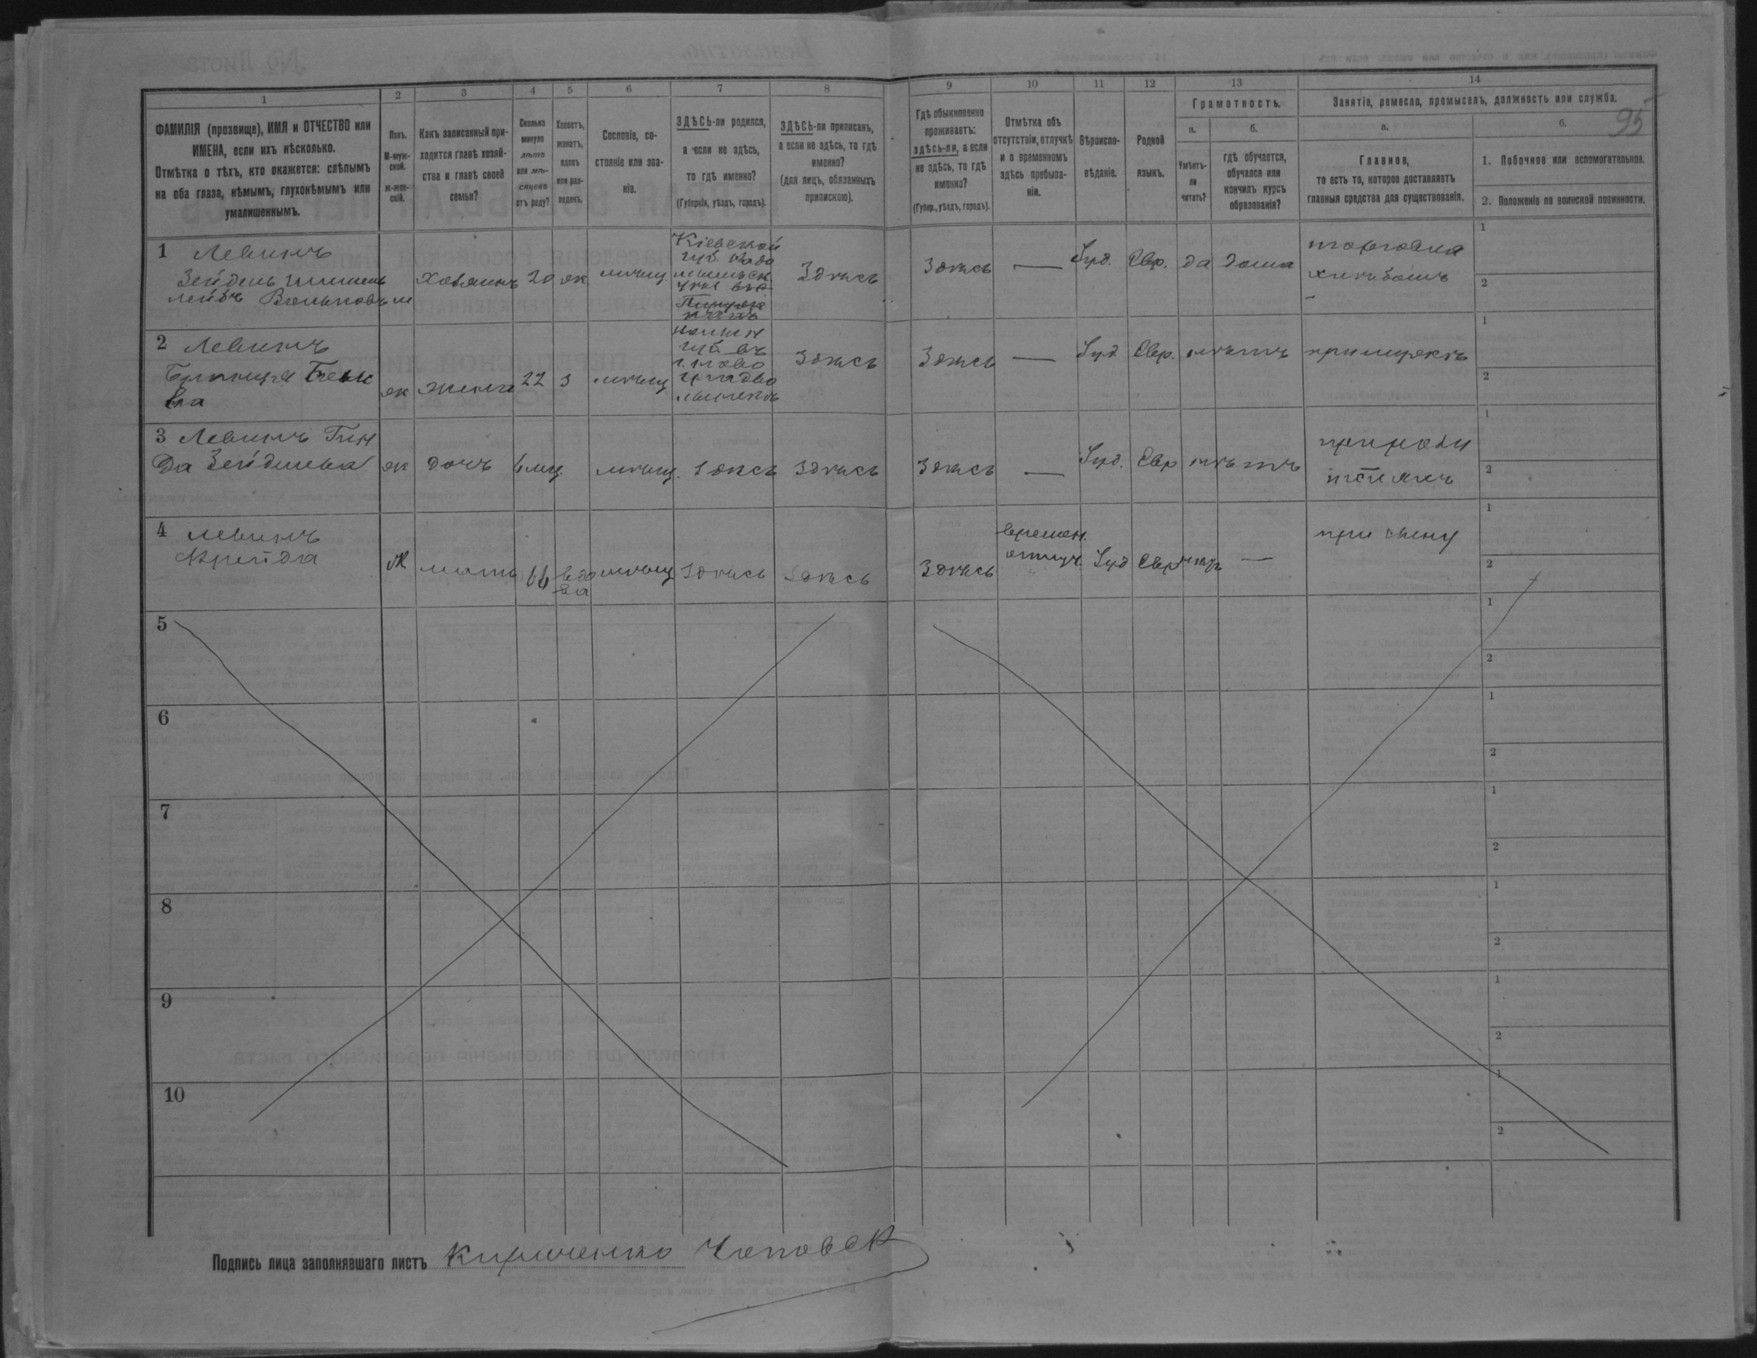 95
1
2
3
4
5
6
7
8
9
10
11
12
13
14
ФАМИЛІЯ (прозвище), ИМЯ и ОТЧЕСТВО или
ИМЕНА, если ихъ нѣсколько.
Отмѣтка о тѣхъ, кто окажется: слѣпымъ
на оба глаза, нѣмымъ, глухонѣмымъ или
умалишеннымъ.
Полъ.
М-муж-
ской.
ж-жен-
скій.
Какъ записанный при-
ходится главѣ хозяй-
ства и главѣ своей
семьи?
Сколько
минуло
лѣтъ
или мѣ-
сяцевъ
отъ роду?
Холостъ,
женатъ,
вдовъ
или раз-
веденъ.
Сословіе, со-
стояніе или зва-
ніе.
ЗДѢСЬ-ли родился,
а если не здѣсь,
то гдѣ именно?
(Губернія, уѣздъ, городъ).
ЗДѢСЬ-ли приписанъ,
а если не здѣсь, то гдѣ
именно?
(для лицъ, обязанныхъ
припискою).
Гдѣ обыкновенно
проживаетъ:
здѣсь-ли, а если
не здѣсь, то гдѣ
именно?
(Губер., уѣздъ, городъ).
Отмѣтка объ
отсутствіи, отлучкѣ
и о временномъ
здѣсь пребыва-
ніи.
Вѣроиспо-
вѣданіе.
Родной
языкъ.
Грамотность.
а.
Умѣетъ-
ли
читать?
б.
гдѣ обучается,
обучался или
кончилъ курсъ
образованія?
Занятіе, ремесло, промыселъ, должность или служба.
а.
Главное,
то есть то, которое доставляетъ
главныя средства для существованія.
б.
1. Побочное или вспомогательное.
2. Положеніе по воинской повинности.
1 Левинъ
Зейдель
лейбъ
м
Хозяинъ
20
ж
мѣщ
Кіевской
губ
Здѣсь
Здѣсь
—
Іуд.
Евр.
да
дома
торговля
хлѣбомъ
1
2
2 Левинъ
ва
ж
жена
22
з
мѣщ
губ
Здѣсь
Здѣсь
—
Іуд
Евр.
нѣтъ
при мужѣ
1
2
3 Левинъ Гин
да Зейдилева
ж
дочь
6 мц
мѣщ.
Здѣсь
Здѣсь
Здѣсь
—
Іуд.
Евр
нѣтъ
при роди
телѣхъ
1
2
4 Левинъ
Фрейда
Ж
мать
66
вдо
ва
мѣщ
Здѣсь
Здѣсь
Здѣсь
времен.
отлуч.
Іуд
Евр
нѣт
—
при сыну
1
2
5
1
2
6
1
2
7
1
2
8
1
2
9
1
2
10
1
2
Подпись лица заполнявшаго листъ Кириченко